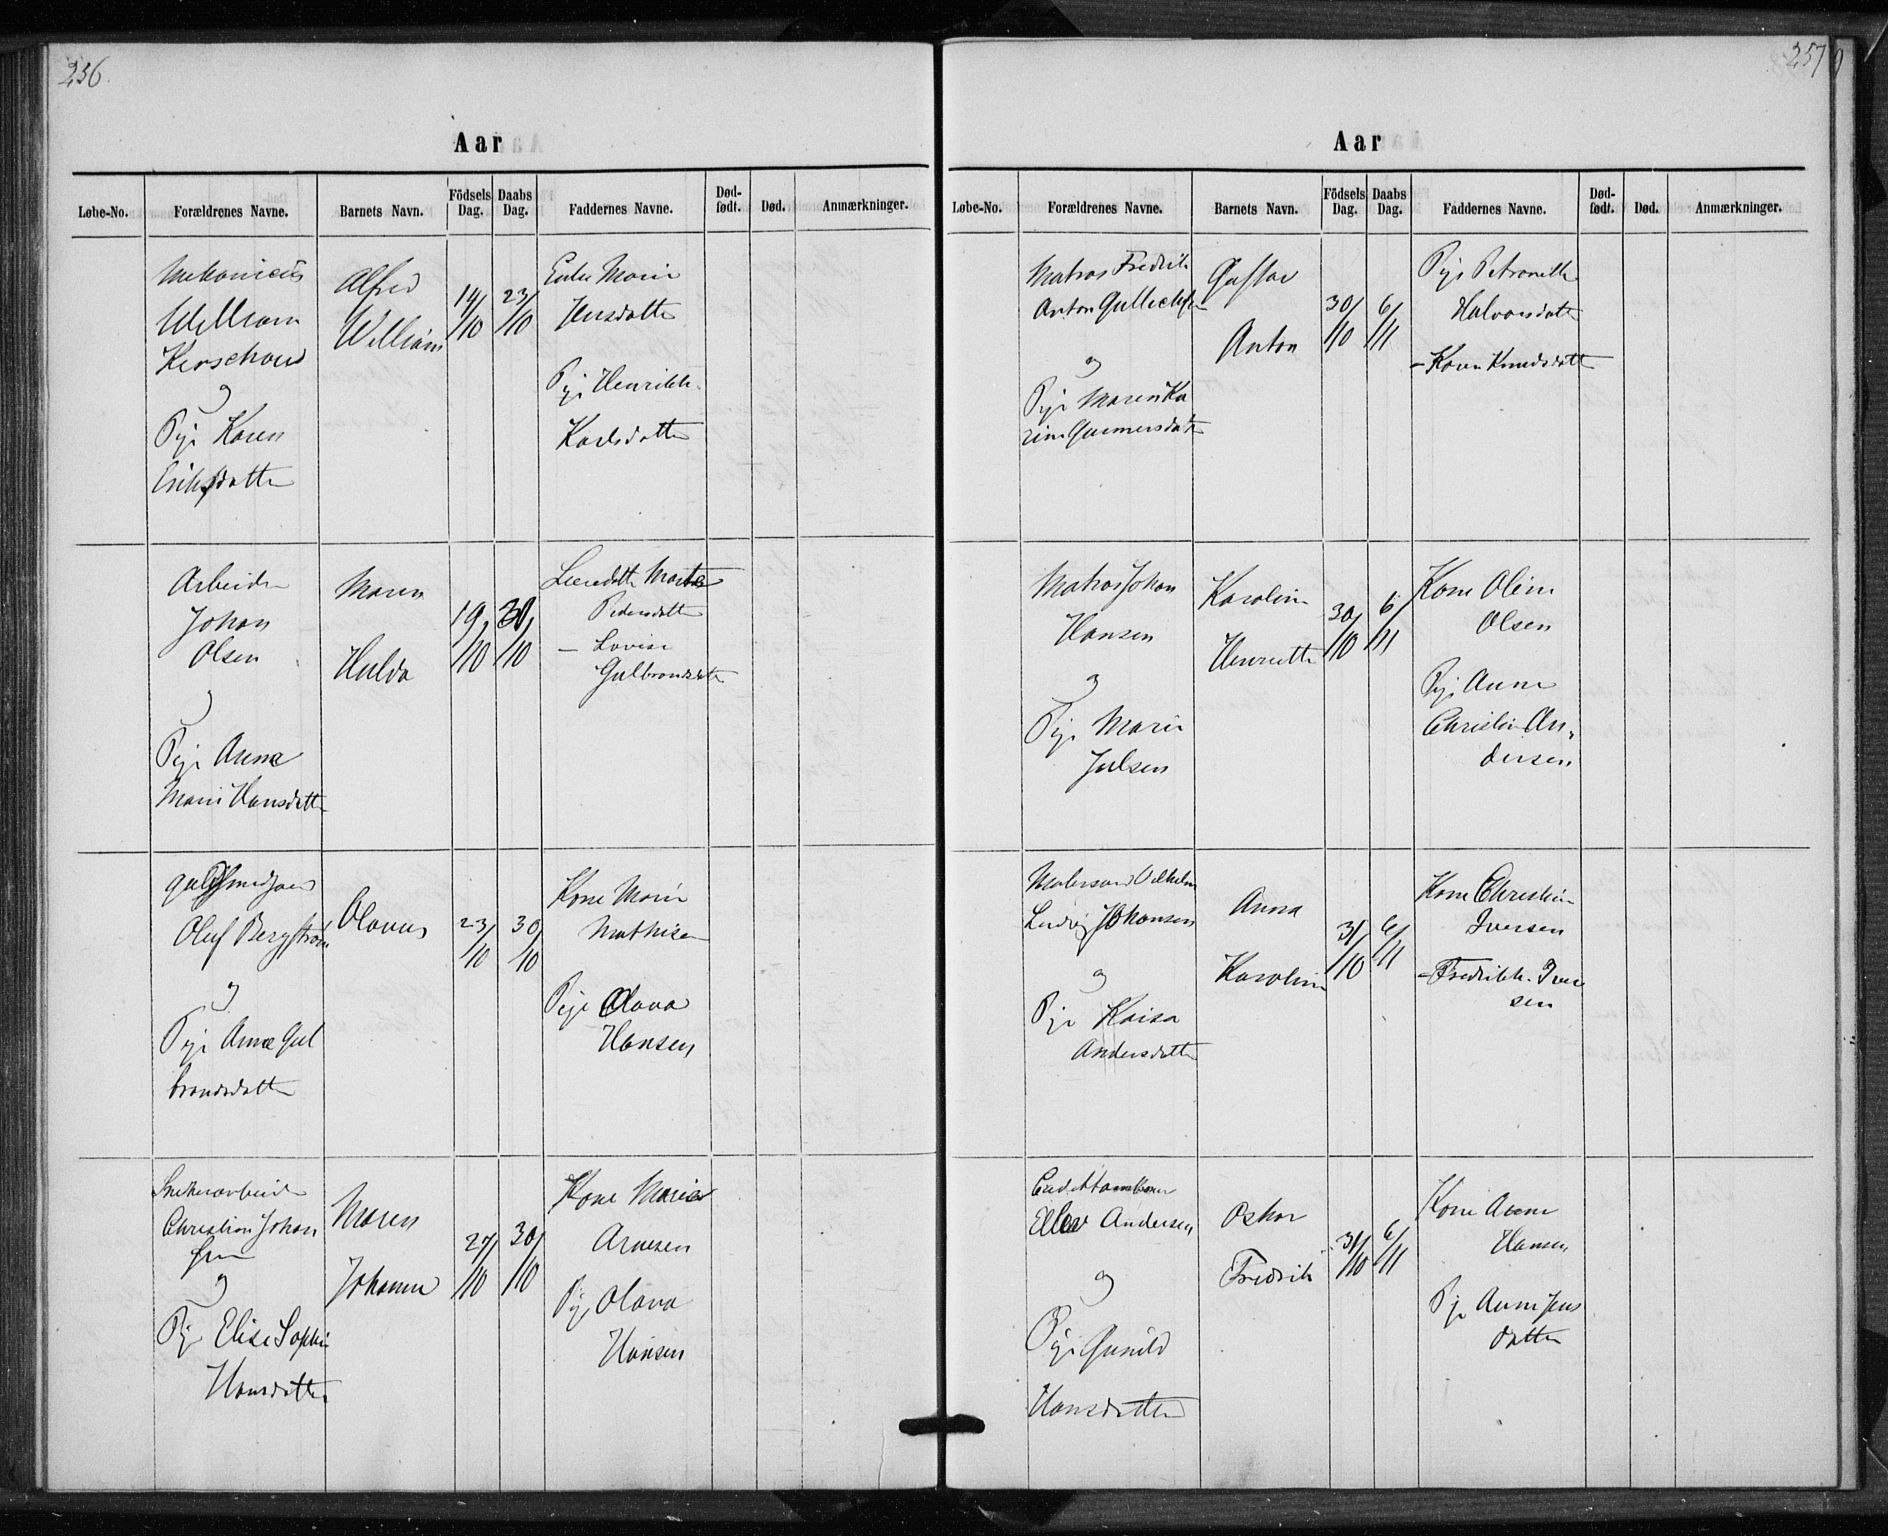 256.
Aar
Løbe-No. Forældrenes Navne. Barnets Navn. Födsels Dag. Daabs Dag. Faddernes Navne. Død-født. Død. Anmærkninger.
Mekanicus
William
Kerschow
og
Pige Karen
Eriksdatter
Alfred
William
14/10
23/10
Enke Marie
Jensdatter
Pige Henrikke
Karlsdatter
Arbeider
Johan
Olsen
og
Pige Anne
Marie Hansdatter
Maren
Hulda
19/10
30/10
Pedersdatter
— Lovise
Gulbrandsdatter
Oluf Bergstrøm
og
Pige Anne Gul
brandsdatter
Olavus
23/10
30/10
Kone Marie
Mathisen
Pige Olava
Hansen
Snekerarbeider
Christian Johan
sen
og
Pige Elise Sophie
Hansdatter
Maren
Johanne
27/10
30/10
Kone Maria
Arnesen
Pige Olava
Hansen
257
Aar
Løbe-No. Forældrenes Navne. Barnets Navn. Födsels Dag. Daabs Dag. Faddernes Navne. Død-født. Død. Anmærkninger.
Matros Fredrik
Anton Gullichsen
og
Pige Maren Ka
rine Gunnersdatter
Gustav
Anton
30/10
6/11
Pige Petronelle
Halvorsdatter
— Karen Knudsdatter
Matros Johan
Hansen
og
Pige Marie
Julsen
Karoline
Henriette
30/10
6/11
Kone Oline
Olsen
Pige Anne
Christine An„
dersen
Malersvend Vilhelm
Ludvig Johansen
og
Pige Kaisa
Andersdatter
Anna
Karoline
31/10
6/11
Kone Christine
Iversen
— Fredrikke Iver
sen
Ellev Andersen
og
Pige Gunild
Hansdatter
Oskar
Fredrik
31/10
6/11
Kone Anne
Hansen
Pige Anne Jens
datter